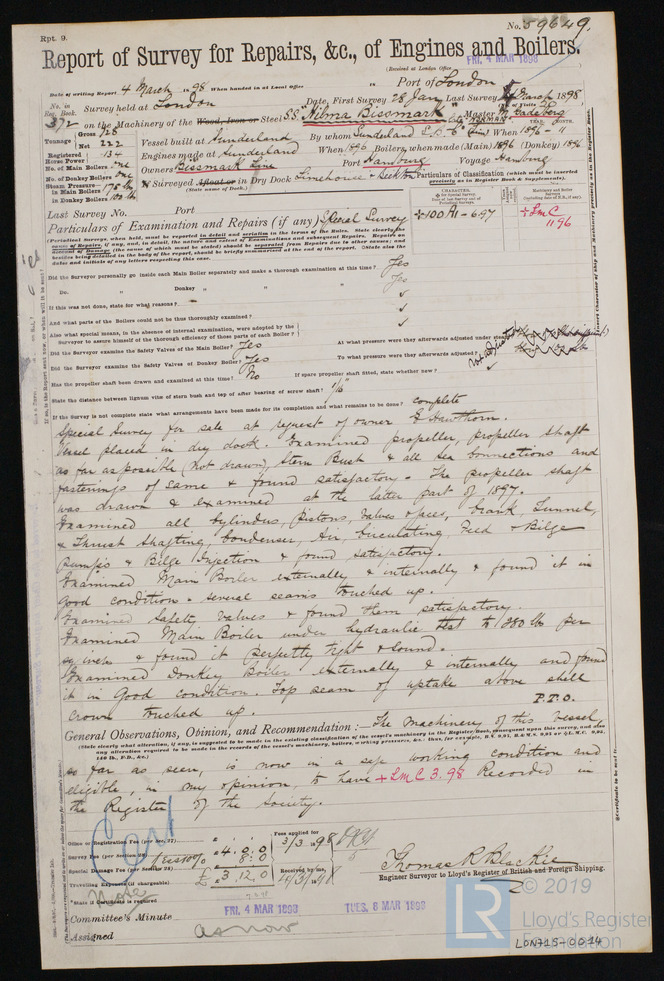 Rpt. 9.
No. 59649.
Report of Survey for Repairs, &c., of Engines and Boilers.
FRI. 4 MAR 1898
(Received at London Office
Date of writing Report 4 March 1898 When handed in at Local Office Port of London
No. in Reg. Book. Survey held at London Date, First Survey 28 Jan Last Survey March 1898
372 on the Machinery of the Wood, Iron or Steel S.S. "Wilma Bissmark" Master
Tonnage Gross 728
Net 222 Vessel built at Sunderland By whom Sunderland When 1896 - 11
Registered Horse Power 134 Engines made at Sunderland When 1896 Boilers, when made (Main) 1896 (Donkey) 1896
No. of Main Boilers one Owners Bissmark Line Port Hamburg Voyage Hamburg
No. of Donkey Boilers one
Steam Pressure in Main Boilers 175 lb Surveyed Afloat or in Dry Dock Limehouse & Beckton
in Donkey Boilers 100 lb (State name of Dock.)
Particulars of Classification (which must be inserted precisely as in Register Book & Supplements).
Last Survey No. Port
+100A1 - 6.97
+LMC 11.96
Particulars of Examination and Repairs (if any) Special Survey
Did the Surveyor personally go inside each Main Boiler separately and make a thorough examination at this time? Yes
Do. " Donkey " " " Yes
If this was not done, state for what reasons?
And what parts of the Boilers could not be thus thoroughly examined?
Also what special means, in the absence of internal examination, were adopted by the
Surveyor to assure himself of the thorough efficiency of those parts of each Boiler?
Did the Surveyor examine the Safety Valves of the Main Boiler? Yes At what pressure were they afterwards adjusted under steam?
Did the Surveyor examine the Safety Valves of Donkey Boiler? Yes To what pressure were they afterwards adjusted?
Has the propeller shaft been drawn and examined at this time? No If spare propeller shaft fitted, state whether new?
State the distance between lignum vitæ of stern bush and top of after bearing of screw shaft? 1/16
If the Survey is not complete state what arrangements have been made for its completion and what remains to be done? complete
Special Survey for sale at request of owner E Hawthorn.
Vessel placed in dry dock. Examined propeller, propeller shaft
as far as possible (not drawn), Stern Bush & all sea connections and
fastenings of same & found satisfactory. The propeller shaft
was drawn & examined at the latter part of 1897.
Examined all cylinders, pistons, valves & faces, Crank, Tunnel,
& Thrust shafting, Condenser, Air, Circulating, Feed & Bilge
pumps & Bilge Injection & found satisfactory.
Examined Main Boiler externally & internally & found it in
good condition. several seams touched up.
Examined Safety Valves & found them satisfactory.
Examined Main Boiler under hydraulic test to 280 lb per
sq inch & found it perfectly tight & sound.
Examined Donkey Boiler externally & internally and found
it in Good condition. Top seam of uptake above shell
crown touched up. P.T.O.
General Observations, Opinion, and Recommendation:— The machinery of this vessel,
so far as seen, is now in a safe working condition and
eligible, in my opinion, to have +LMC 3.98 Recorded in
the Register of the Society.
Cert
Note
Office or Registration Fee (per Sec. 27)
Survey Fee (per Section 28) 4 : 0 : 0
Special Damage Fee (per Section 28) less 10% 8 : 0
Travelling Expenses (if chargeable) £ 3 . 12 . 0
Fees applied for
3/3 1898
Received by me,
*State if Certificate is required
Thomas R Blackie
Engineer Surveyor to Lloyd's Register of British and Foreign Shipping.
Committee's Minute FRI. 4 MAR 1898 TUES. 8 MAR 1898
Assigned as now
LR
© 2019
Lloyd's Register
Foundation
LON715-0014